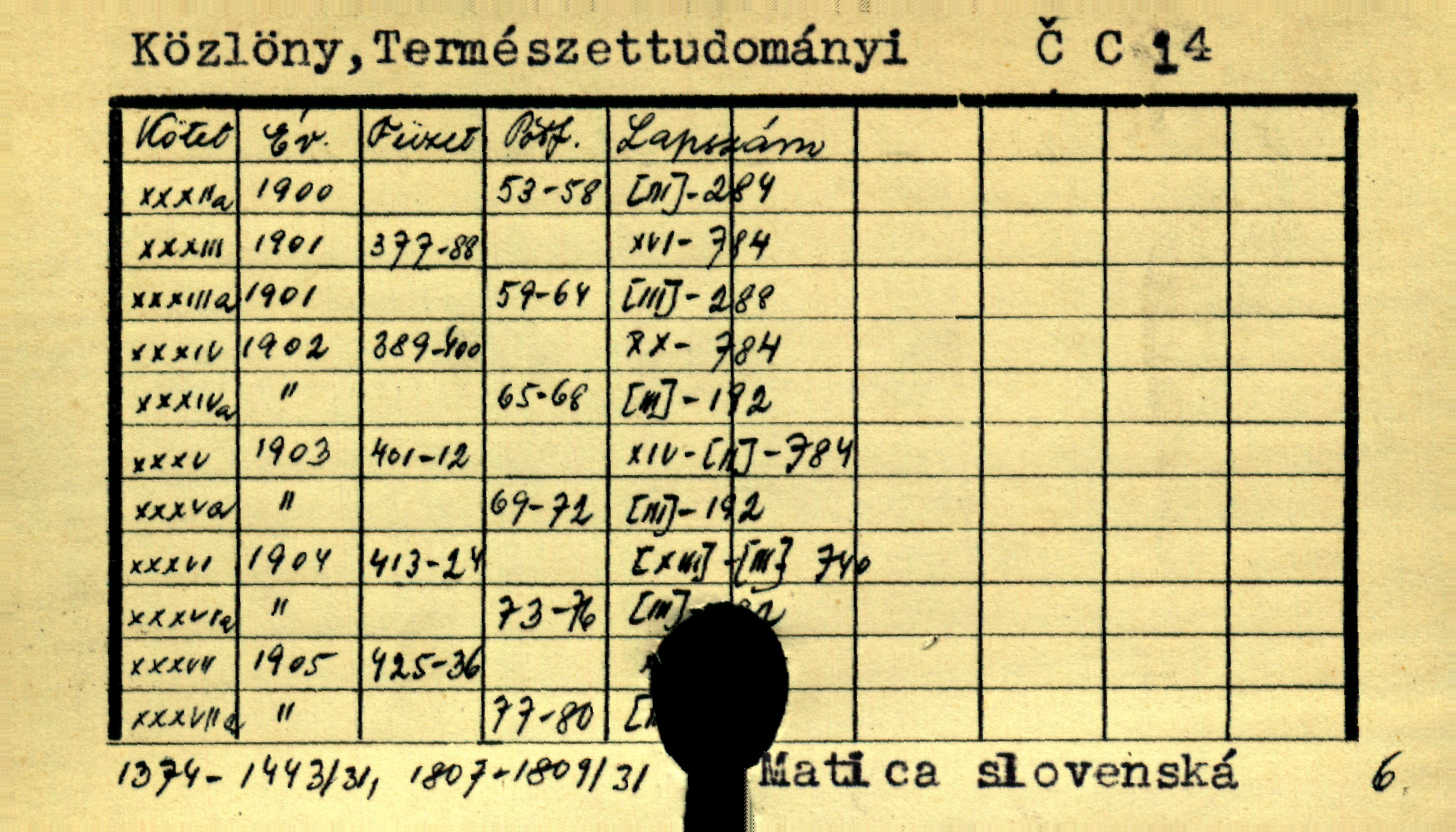 Közlöny,Természettudományi Č C 14
Kötet Év. Füzet Pótf. Lapszám
XXXIIa 1900 53-58 [III]-284
XXXIII 1901 377-88 XVI- 784
XXXIIIa 1901 59-64 [III]- 288
XXXIV 1902 389-400 XX- 784
XXXIVa " 65-68 [III]-192
XXXV 1903 401-12 XIV-[II]-784
XXXVa " 69-72 [III]-192
XXXVI 1904 413-24 [XIII]-[III] 740
XXXVIa " 73-76 [III]-
XXXVII 1905 425-36
XXXVIIa " 77-80
1374- 1443/31, 1807-1809/31 Matica slovenská 6.